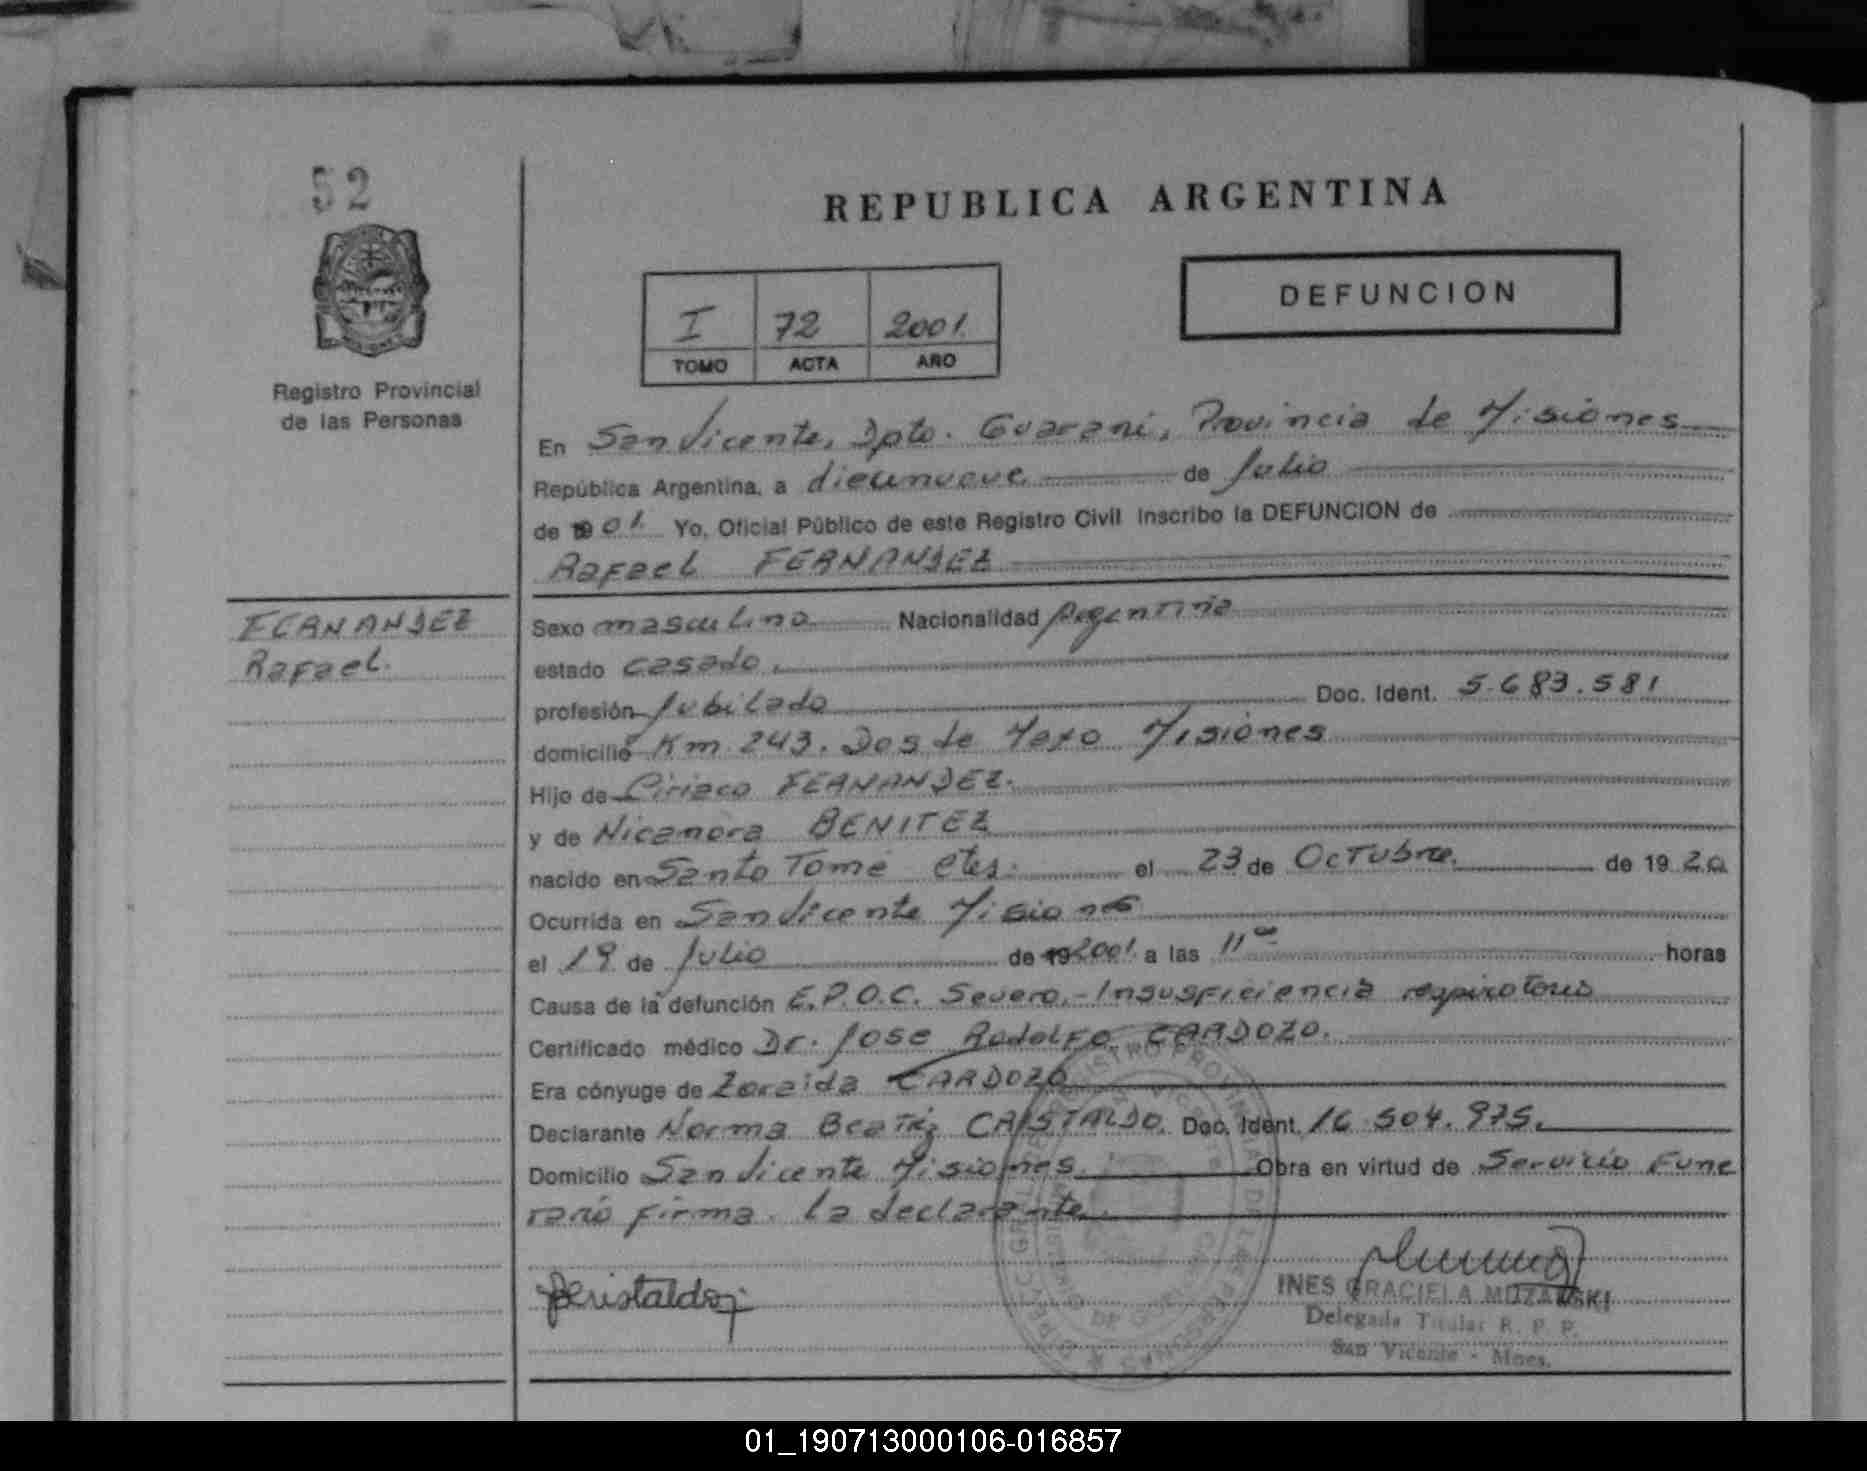 52
REPUBLICA ARGENTINA
DEFUNCION
I 72 2001.
TOMO ACTA AÑO
Registro Provincial
de las Personas
En San Vicente, Dpto. Guarani, Provincia de Misiones
República Argentina, a diecinueve de Julio
de 01. Yo, Oficial Público de este Registro Civil Inscribo la DEFUNCION de
Rafael FERNANDEZ
FERNANDEZ
Rafael.
Sexo masculino Nacionalidad Argentina
estado casado.
profesión Jubilado Doc. Ident. 5.683.581
domicilio Km 243. Dos de Mayo Misiones
Hijo de Ciriaco FERNANDEZ.
y de Nicanora BENITEZ
nacido en Santo Tomé Ctes. el 23 de Octubre. de 1920
Ocurrida en San Vicente Misiones
el 19 de Julio de 19 2001. a las 11 00 horas
Causa de la defunción E.P.O.C. Severo.- Insusficiencia respiratoria
Certificado médico Dr. Jose Rodolfo CARDOZO.
Era cónyuge de Zoraida CARDOZO
Declarante Norma Beatriz CRISTALDO. Doc. Ident. 16.504.975.
Domicilio San Vicente Misiones. Obra en virtud de Servicio Fune
rario firma. la declarante.
INES GRACIELA MUZALSKI
Delegada Titular R. P. P.
San Vicente - Mnes.
01_190713000106-016857